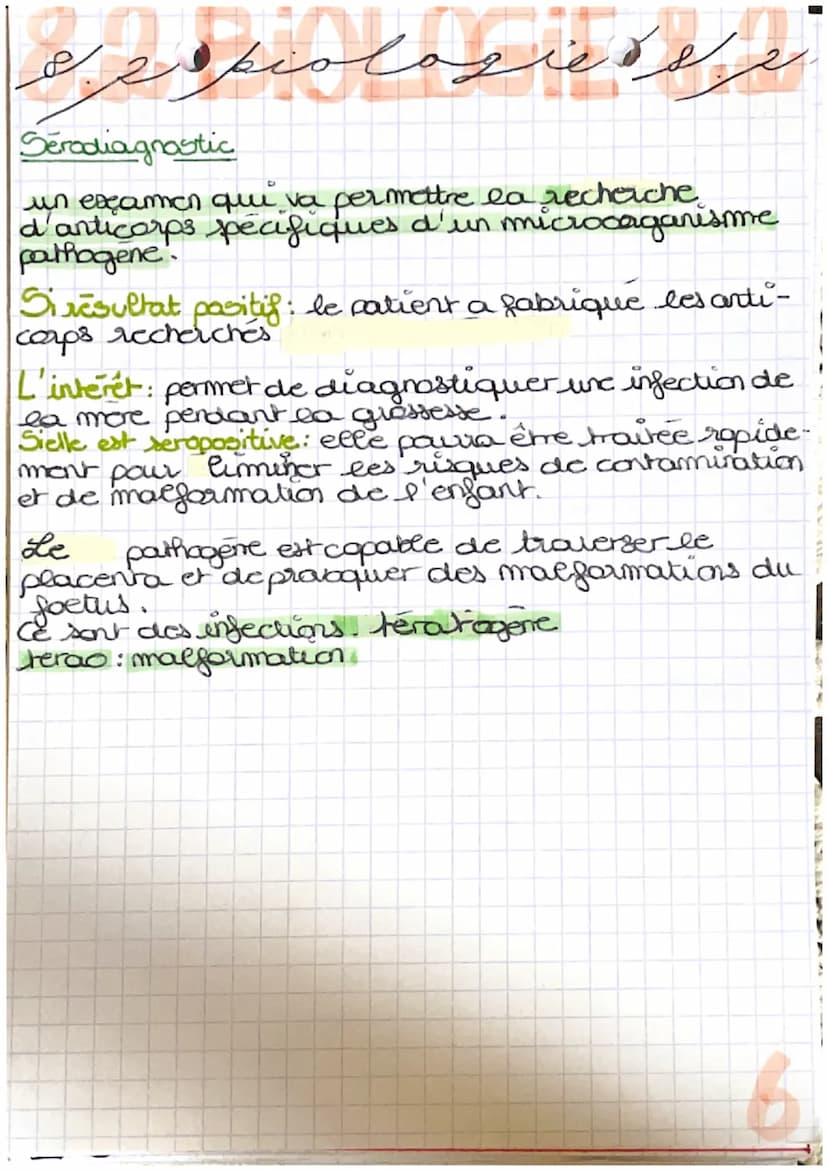 8.2 BiOLOGiE 8.2
8.2 biologie 8.2
Sérodiagnostic
un examen qui va permettre la recherche
d'anticorps spécifiques d'un microorganisme
pathogène.
Si résultat positif : le patient a fabriqué les anti-
corps recherchés
L'intérêt : permet de diagnostiquer une infection de
la mère pendant la grossesse.
Si elle est seropositive : elle pourra être traitée rapide-
ment pour liminer les risques de contamination
et de malformation de l'enfant.
Le pathogène est capable de traverser le
placenta et de provoquer des malformations du
foetus.
Ce sont des infections. tératogène
terao : malformation.
6